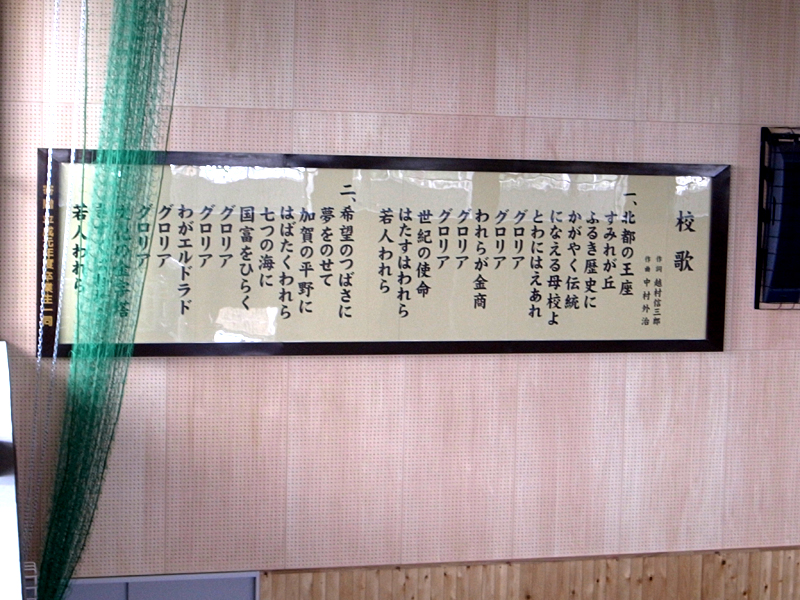 校歌
作詞 越村信三郎
作曲 中村外治
一、北都の王座
すみれが丘
ふるき歴史に
かがやく伝統
になえる母校よ
とわにはえあれ
グロリア
グロリア
われらが金商
グロリア
グロリア
世紀の使命
はたすはわれら
若人われら
二、希望のつばさに
夢をのせて
加賀の平野に
はばたくわれら
七つの海に
国富をひらく
グロリア
グロリア
わがエルドラド
グロリア
グロリア
若人われら